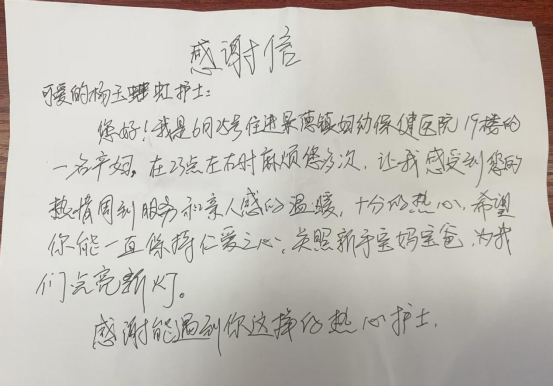 感谢信
可爱的杨玉虹护士:
您好!我是6月25号住进景德镇妇幼保健医院19楼的
一名孕妇。在23点左右时麻烦您多次,让我感受到您的
热情周到服务和亲人感的温暖,十分的热心,希望
你能一直保持仁爱之心,关照新手宝妈宝爸,为我
们点亮新灯。
感谢能遇到你这样的热心护士.